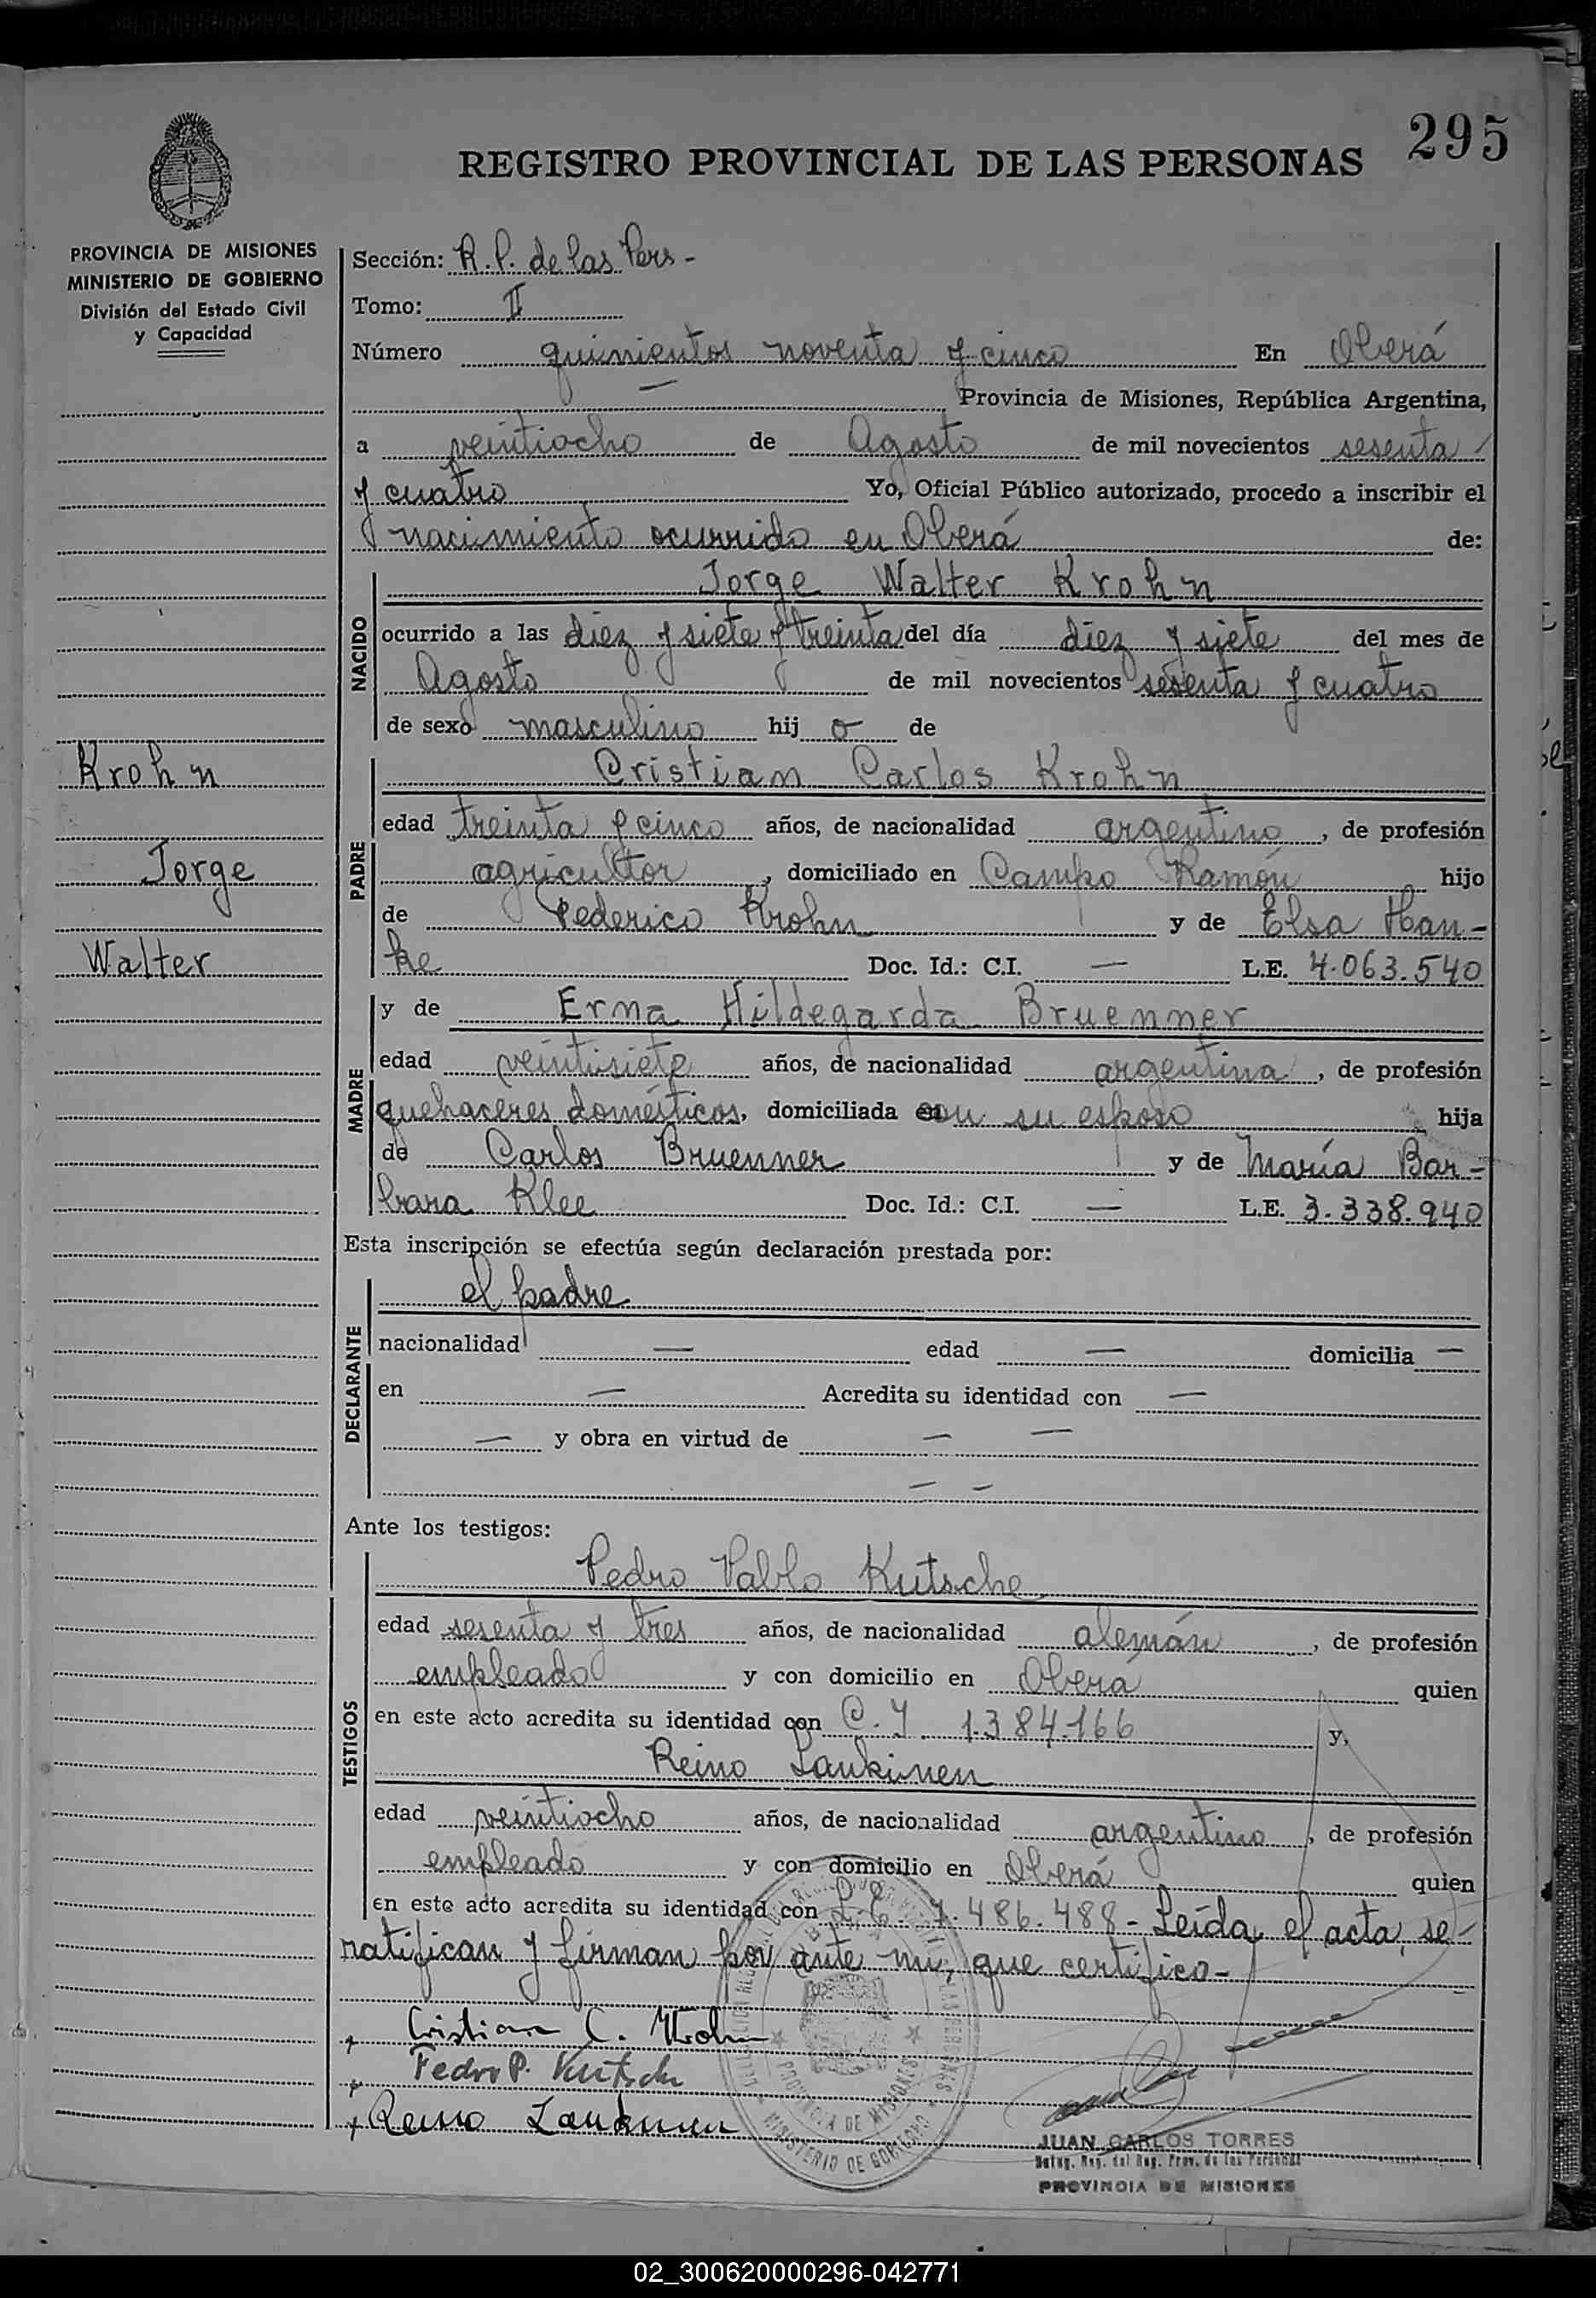 295
REGISTRO PROVINCIAL DE LAS PERSONAS
PROVINCIA DE MISIONES
MINISTERIO DE GOBIERNO
División del Estado Civil
y Capacidad
Krohn
Jorge
Walter
Sección: R. P. de las Pers -
Tomo: II
Número quinientos noventa y cinco En Oberá
— Provincia de Misiones, República Argentina,
a veintiocho de Agosto de mil novecientos sesenta
y cuatro Yo, Oficial Público autorizado, procedo a inscribir el
nacimiento ocurrido en Oberá de:
NACIDO
Jorge Walter Krohn
ocurrido a las diez y siete y treinta del día diez y siete del mes de
Agosto de mil novecientos sesenta y cuatro
de sexo masculino hij o de
PADRE
Cristian Carlos Krohn
edad treinta y cinco años, de nacionalidad argentino, de profesión
agricultor, domiciliado en Campo Ramón hijo
de Federico Krohn y de Elsa Han-
ke Doc. Id.: C.I. — L.E. 4.063.540
MADRE
y de Erna Hildegarda Bruenner
edad veintisiete años, de nacionalidad argentina, de profesión
quehaceres domésticos, domiciliada con su esposo hija
de Carlos Bruenner y de María Bar-
bara Klee Doc. Id.: C.I. — L.E. 3.338.940
Esta inscripción se efectúa según declaración prestada por:
DECLARANTE
el padre
nacionalidad — edad — domicilia —
en — Acredita su identidad con —
— y obra en virtud de — —
— —
Ante los testigos:
TESTIGOS
Pedro Pablo Kutsche
edad sesenta y tres años, de nacionalidad alemán, de profesión
empleado y con domicilio en Oberá quien
en este acto acredita su identidad con C. I. 1.384.166 y,
Reino Laukinen
edad veintiocho años, de nacionalidad argentino, de profesión
empleado y con domicilio en Oberá quien
en este acto acredita su identidad con L. E. 7.486.488 - Leída el acta, se
ratifican y firman por ante mi, que certifico -
Cristian C. Krohn
Pedro P. Kutsche
Reino Laukinen
PROVINCIA DE MISIONES
MINISTERIO DE GOBIERNO
JUAN CARLOS TORRES
Deleg. Reg. del Reg. Prov. de las Personas
PROVINCIA DE MISIONES
02_300620000296-042771